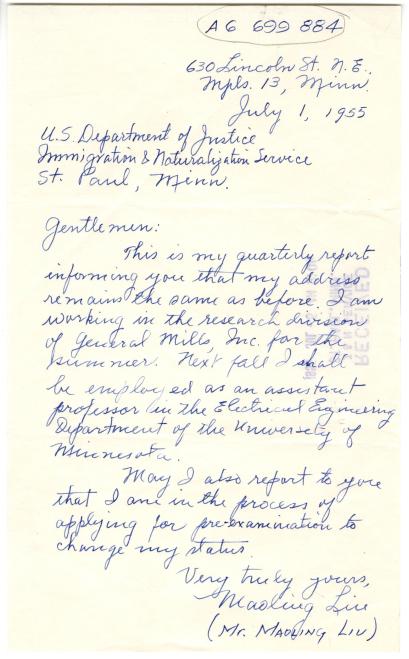 A6 699 884
630 Lincoln St. N.E.,
Mpls. 13, Minn.
July 1, 1955
U.S. Department of Justice
Immigration & Naturalization Service
St. Paul, Minn.
Gentlemen:
This is my quarterly report
informing you that my address
remains the same as before. I am
working in the research division
of General Mills, Inc. for the
summer. Next fall I shall
be employed as an assistant
professor in the Electrical Engineering
Department of the University of
Minnesota.
May I also report to you
that I am in the process of
applying for pre-examination to
change my status.
Very truly yours,
Maoling Liu
(Mr. MAOLING LIU)
RECEIVED